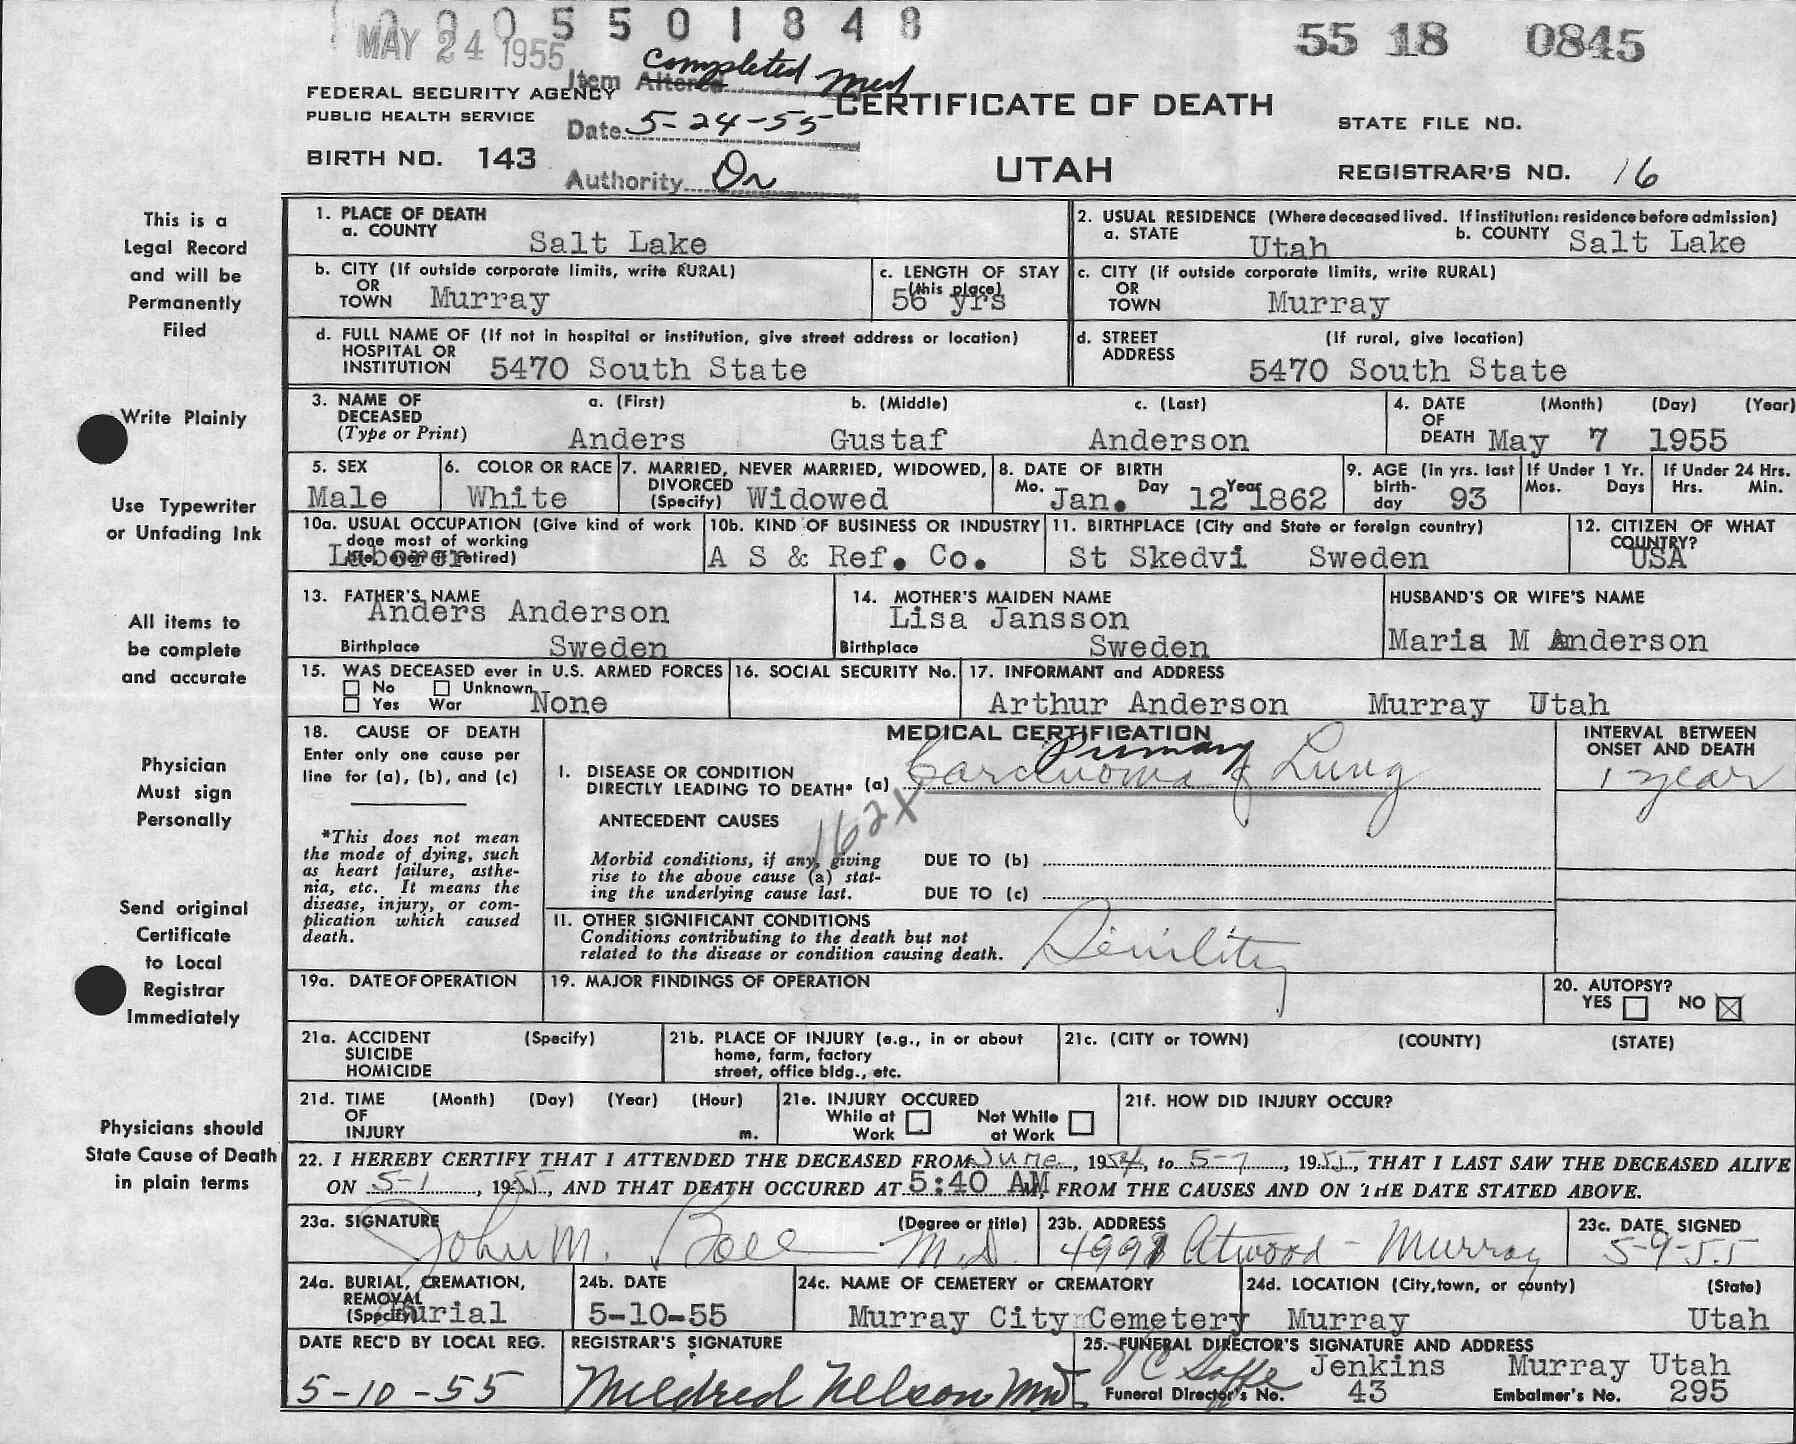 0005501848
MAY 24 1955
55 18 0845
Completed Med
Item Altered
FEDERAL SECURITY AGENCY
PUBLIC HEALTH SERVICE
Date 5-24-55
CERTIFICATE OF DEATH
STATE FILE NO.
BIRTH NO. 143
Authority Dr
UTAH
REGISTRAR'S NO. 16
This is a
Legal Record
and will be
Permanently
Filed
Write Plainly
Use Typewriter
or Unfading Ink
All items to
be complete
and accurate
Physician
Must sign
Personally
Send original
Certificate
to Local
Registrar
Immediately
Physicians should
State Cause of Death
in plain terms
1. PLACE OF DEATH
a. COUNTY Salt Lake
2. USUAL RESIDENCE (Where deceased lived. If institution: residence before admission)
a. STATE Utah b. COUNTY Salt Lake
b. CITY (If outside corporate limits, write RURAL)
OR
TOWN Murray
c. LENGTH OF STAY
(this place)
56 yrs
c. CITY (if outside corporate limits, write RURAL)
OR
TOWN Murray
d. FULL NAME OF (If not in hospital or institution, give street address or location)
HOSPITAL OR
INSTITUTION 5470 South State
d. STREET (If rural, give location)
ADDRESS
5470 South State
3. NAME OF DECEASED (Type or Print)
a. (First) b. (Middle) c. (Last)
Anders Gustaf Anderson
4. DATE OF DEATH (Month) (Day) (Year)
May 7 1955
5. SEX
Male
6. COLOR OR RACE
White
7. MARRIED, NEVER MARRIED, WIDOWED,
DIVORCED
(Specify) Widowed
8. DATE OF BIRTH
Mo. Day Year
Jan. 12 1862
9. AGE (In yrs. last
birth-
day 93
If Under 1 Yr.
Mos. Days
If Under 24 Hrs.
Hrs. Min.
10a. USUAL OCCUPATION (Give kind of work
done most of working
life, even if retired)
Laborer
10b. KIND OF BUSINESS OR INDUSTRY
A S & Ref. Co.
11. BIRTHPLACE (City and State or foreign country)
St Skedvi Sweden
12. CITIZEN OF WHAT
COUNTRY?
USA
13. FATHER'S NAME
Anders Anderson
Birthplace Sweden
14. MOTHER'S MAIDEN NAME
Lisa Jansson
Birthplace Sweden
HUSBAND'S OR WIFE'S NAME
Maria M Anderson
15. WAS DECEASED ever in U.S. ARMED FORCES
No Unknown
Yes War None
16. SOCIAL SECURITY No.
17. INFORMANT and ADDRESS
Arthur Anderson Murray Utah
18. CAUSE OF DEATH
Enter only one cause per
line for (a), (b), and (c)
*This does not mean
the mode of dying, such
as heart failure, asthe-
nia, etc. It means the
disease, injury, or com-
plication which caused
death.
MEDICAL CERTIFICATION
INTERVAL BETWEEN
ONSET AND DEATH
Primary
I. DISEASE OR CONDITION
DIRECTLY LEADING TO DEATH* (a) Carcinoma of Lung
1 year
162X
ANTECEDENT CAUSES
Morbid conditions, if any, giving
rise to the above cause (a) stat-
ing the underlying cause last.
DUE TO (b)
DUE TO (c)
II. OTHER SIGNIFICANT CONDITIONS
Conditions contributing to the death but not
related to the disease or condition causing death.
Senility
19a. DATE OF OPERATION
19. MAJOR FINDINGS OF OPERATION
20. AUTOPSY?
YES NO X
21a. ACCIDENT (Specify)
SUICIDE
HOMICIDE
21b. PLACE OF INJURY (e.g., in or about
home, farm, factory
street, office bldg., etc.
21c. (CITY or TOWN) (COUNTY) (STATE)
21d. TIME (Month) (Day) (Year) (Hour)
OF
INJURY m.
21e. INJURY OCCURED
While at Work Not While at Work
21f. HOW DID INJURY OCCUR?
22. I HEREBY CERTIFY THAT I ATTENDED THE DECEASED FROM June, 1954, to 5-7, 1955, THAT I LAST SAW THE DECEASED ALIVE
ON 5-1, 1955, AND THAT DEATH OCCURED AT 5:40 AM, FROM THE CAUSES AND ON THE DATE STATED ABOVE.
23a. SIGNATURE (Degree or title)
John M. M.D.
23b. ADDRESS
Atwood - Murray
23c. DATE SIGNED
5-9-55
24a. BURIAL, CREMATION,
REMOVAL
(Specify) Burial
24b. DATE
5-10-55
24c. NAME OF CEMETERY or CREMATORY
Murray City Cemetery
24d. LOCATION (City, town, or county) (State)
Murray Utah
DATE REC'D BY LOCAL REG.
5-10-55
REGISTRAR'S SIGNATURE
Mildred Nelson
25. FUNERAL DIRECTOR'S SIGNATURE AND ADDRESS
Jenkins Murray Utah
Funeral Director's No. 43 Embalmer's No. 295